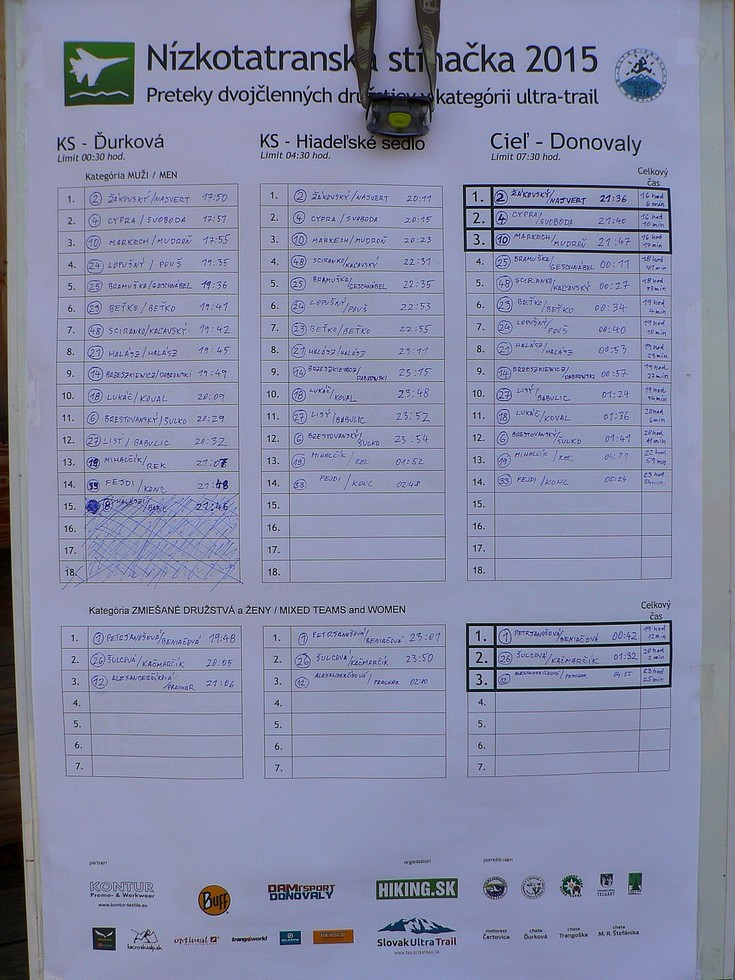 Nízkotatranská stíhačka 2015
Preteky dvojčlenných družstiev v kategórii ultra-trail
KS - Ďurková
Limit 00:30 hod.
KS - Hiadeľské sedlo
Limit 04:30 hod.
Cieľ - Donovaly
Limit 07:30 hod.
Kategória MUŽI / MEN
Celkový
čas
1. 2 ŽÁKOVSKÝ/NAJVERT 17:50
2. 4 CYPRA/SVOBODA 17:51
3. 10 MARKECH/MUDROŇ 17:55
4. 24 LOPUŠNÝ / POUŠ 19:35
5. 25 BRAMUŠKA/GESCHNÁBEL 19:36
6. 23 BEŤKO/BEŤKO 19:41
7. 48 SCIRANKO/KAČAVSKÝ 19:42
8. 21 HALÁSZ/HALÁSZ 19:45
9. 14 BRZESZKIEWICZ/DABROWSKI 19:49
10. 18 LUKÁČ/KOVAL 20:09
11. 6 BRESTOVANSKÝ/ŠULKO 20:29
12. 27 LISÝ/BABULIC 20:32
13. 19 MIHALČÍK/REK
14. 33 FEJDI/KONC 21:48
15. 21:46
16.
17.
18.
1. 2 ŽÁKOVSKÝ/NAJVERT 20:11
2. 4 CYPRA / SVOBODA 20:15
3. 10 MARKECH/MUDROŇ 20:23
4. 48 SCIRANKO/KAČAVSKÝ 22:31
5. 25 BRAMUŠKA/GESCHNÁBEL 22:35
6. 24 LOPUŠNÝ/POUŠ 22:53
7. 23 BEŤKO/BEŤKO 22:55
8. 21 HALÁSZ/HALÁSZ 23:11
9. 14 BRZESZKIEWICZ/DABROWSKI 23:15
10. 18 LUKÁČ/KOVAL 23:48
11. 27 LISÝ/BABULIC 23:52
12. 6 BRESTOVANSKÝ/ŠULKO 23:54
13. 19 MIHALČÍK / REK 01:52
14. 33 FEJDI/KONC 02:48
15.
16.
17.
18.
1. 2 ŽÁKOVSKÝ/NAJVERT 21:36 16 hod 6 min
2. 4 CYPRA/SVOBODA 21:40 16 hod 10 min
3. 10 MARKECH/MUDROŇ 21:47 16 hod 17 min
4. 25 BRAMUŠKA/GESCHNÁBEL 00:11 18 hod 41 min
5. 48 SCIRANKO/KAČAVSKÝ 00:27 18 hod 57 min
6. 23 BEŤKO/BEŤKO 00:34 19 hod 4 min
7. 24 LOPUŠNÝ/POUŠ 00:40 19 hod 10 min
8. 21 HALÁSZ/HALÁSZ 00:53 19 hod 23 min
9. 14 BRZESZKIEWICZ/DABROWSKI 00:57 19 hod 27 min
10. 27 LISÝ/BABULIC 01:24 19 hod 54 min
11. 18 LUKÁČ/KOVAL 01:36 20 hod 6 min
12. 6 BRESTOVANSKÝ/ŠULKO 01:41 20 hod 11 min
13. 19 MIHALČÍK/REK 04:29 22 hod 59 min
14. 33 FEJDI/KONC 05:24 23 hod 54 min
15.
16.
17.
18.
Kategória ZMIEŠANÉ DRUŽSTVÁ a ŽENY / MIXED TEAMS and WOMEN
Celkový
čas
1. 1 PETRJÁNOŠOVÁ/BENIAČOVÁ 19:48
2. 26 ŠULCOVÁ/KAČMARČÍK 20:05
3. 12 ALEXANDERČÍKOVÁ/PRACHAR 21:06
4.
5.
6.
7.
1. 1 PETRJÁNOŠOVÁ/BENIAČOVÁ 23:01
2. 26 ŠULCOVÁ/KAČMARČÍK 23:50
3. 12 ALEXANDERČÍKOVÁ/PRACHAR 02:10
4.
5.
6.
7.
1. 1 PETRJÁNOŠOVÁ/BENIAČOVÁ 00:42 19 hod 12 min
2. 26 ŠULCOVÁ/KAČMARČÍK 01:32 20 hod 2 min
3. 12 ALEXANDERČÍKOVÁ/PRACHAR 04:55 23 hod 25 min
4.
5.
6.
7.
partneri
organizátori
pomohli nám
KONTUR
Promo- & Workwear
www.kontur-textile.eu
BUFF
DAMI SPORT
DONOVALY
HIKING.SK
TELGÁRT
lacnyskialp.sk
optimal
trangoworld
Slovak Ultra Trail
motorest
Čertovica
chata
Ďurková
chata
Trangoška
chata
M. R. Štefánika